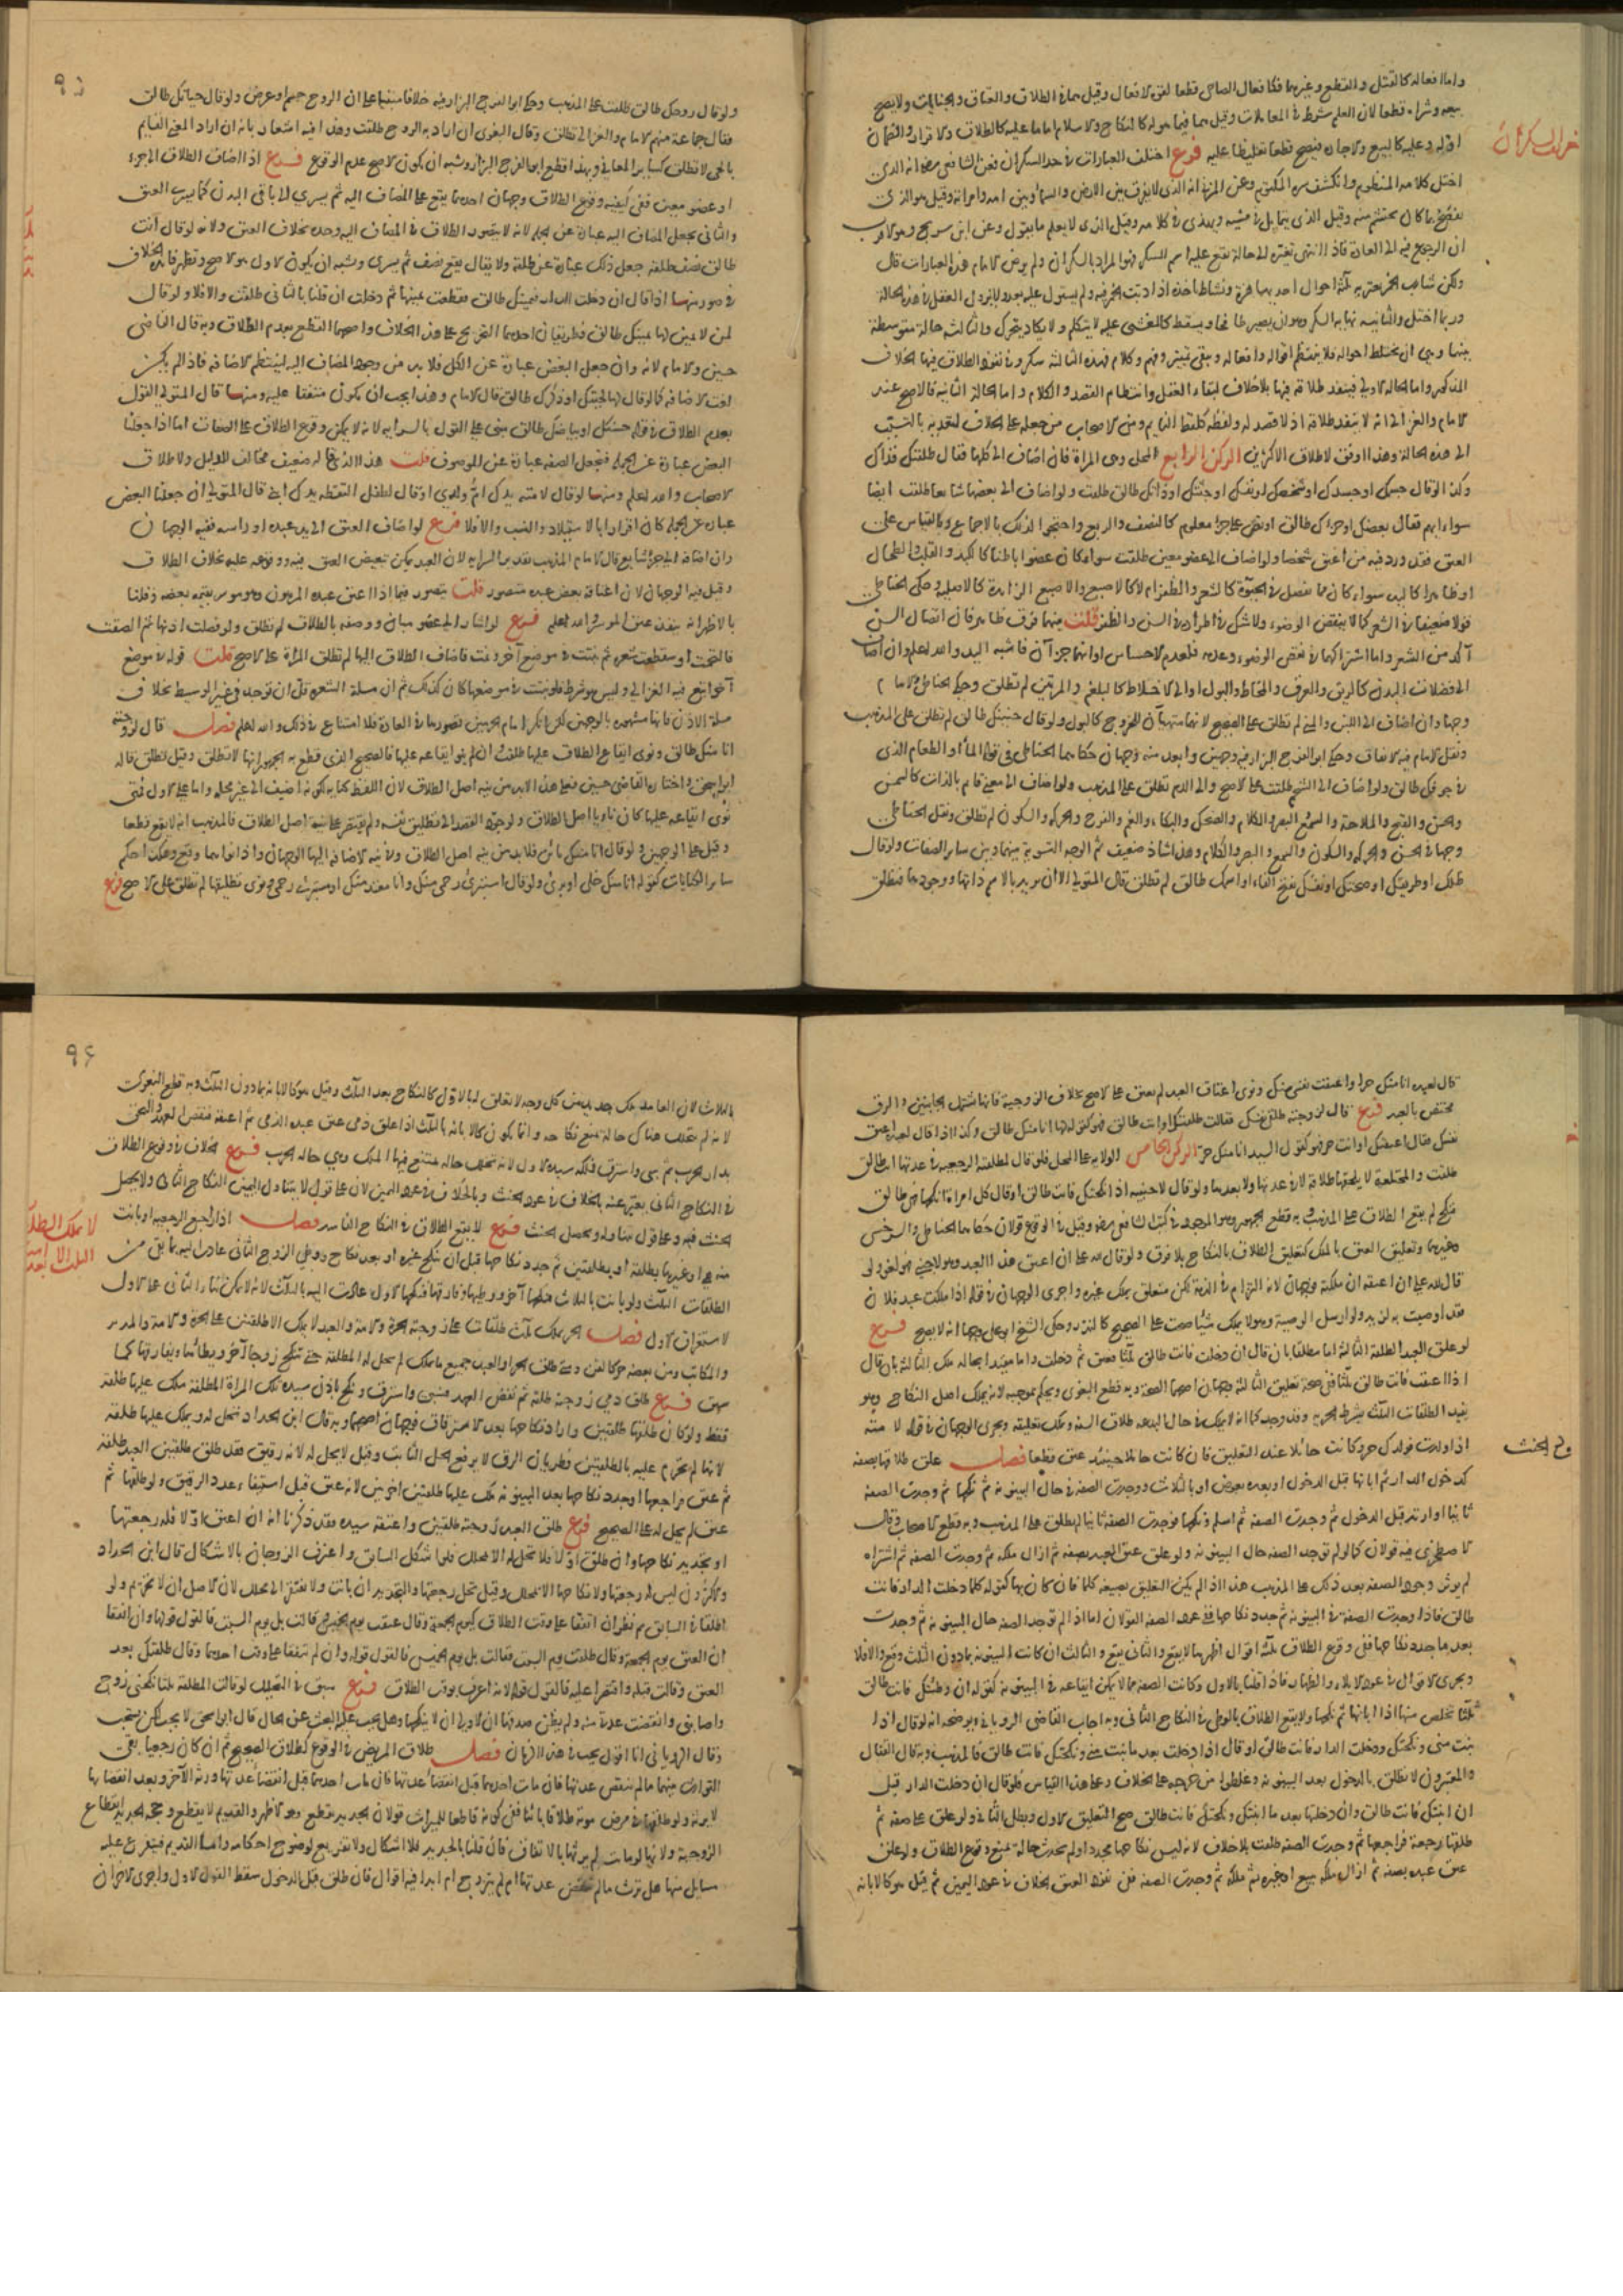 واما افعاله كالقتل والقطع وغيرهما فكافعال الصاحي قطعا لقوة الافعال وقيل بما في الطلاق والعتاق والجنايات ولا يصح
بيعه وشراه قطعا لان العلم شرط في المعاملات وقيل هما فيما هو له كالنكاح والاسلام اما ما عليه كالطلاق والاقرار والضمان
اوله وعليه كالبيع والاجارة فيصح قطعا تغليظا عليه فرع اختلف العبارات في حد السكران فعن الشافعي رضي انه الذي
اختل كلامه المنظوم وانكشف سره المكتوم وعن المزني انه الذي لا يفرق بين الارض والسماء وبين امه وامراته وقيل هو الذي
يفصح بما كان يحتشم منه وقيل الذي يتمايل في مشيه ويهذي في كلامه وقيل الذي لا يعلم ما يقول وعن ابن سريج وهو الاقرب
ان الرجوع فيه الى العادة فاذا انتهى تغيره الى حالة يقع عليه اسم السكر فهو المراد بالسكران ولم يرض الامام هذه العبارات قال
ولكن شارب الخمر تعتريه ثلثة احوال احديها هزة ونشاط ياخذه اذا دبت الخمر فيه ولم يستول عليه بعد ولا يزول العقل في هذه الحالة
وربما احتد والثانية نهاية السكر وهو ان يصير طافحا ويسقط كالمغشي عليه لا يتكلم ولا يكاد يتحرك والثالثة حالة متوسطة
بينهما وهي ان يختلط احواله فلا ينتظم اقواله وافعاله ويبقى تمييز وفهم وكلام فهذه الثالثة سكر وفي نفوذ الطلاق فيها الخلاف
المذكور واما الحالة الاولى فينفذ طلاقه فيها بلا خلاف لبقاء العقل وانتظام القصد والكلام واما الحالة الثانية فالاصح عند
الامام والغزالي انه لا ينفذ طلاقه اذ لا قصد له ولفظه كلفظ النايم ومن الاصحاب من جعله على الخلاف لتعديه بالتسبب
الى هذه الحالة وهذا اوفق لاطلاق الاكثرين الركن الرابع المحل وهي المراة فان اضاف الى كلها فقال طلقتك فذاك
وكذا لو قال جسمك او جسدك او شخصك او نفسك او جثتك او ذاتك طالق طلقت ولو اضاف الى بعضها شايعا طلقت ايضا
سواء ابهم فقال بعضك او جزءك طالق او نص على جزء معلوم كالنصف والربع واحتجوا لذلك بالاجماع وبالقياس على
العتق فقد ورد فيه من اعتق شقصا ولو اضاف الى عضو معين طلقت سواء كان عضوا باطنا كالكبد والقلب والطحال
او ظاهرا كاليد سواء كان مما يفصل في الحيوة كالشعر والظفر ام لا كالاصبع والاصبع الزايدة كالاصلية وحكى الحناطي
قولا ضعيفا في الشعر كما لا ينقض الوضوء ولا شك في اطراده في السن والظفر قلت بينهما فرق ظاهر فان اتصال السن
آكد من الشعر واما اشتراكهما في نقض الوضوء وعدمه فلعدم الاحساس او انهما جزآن فاشبه اليد والله اعلم وان اضاف
الى فضلات البدن كالريق والعرق والمخاط والبول او الى الاخلاط كالبلغم والمرتين لم تطلق وحكى الحناطي والامام
وجها وان اضاف الى اللبن والمني لم تطلق على الصحيح لانهما متهيآن للخروج كالبول ولو قال جنينك طالق لم تطلق على المذهب
ونقل الامام فيه الاتفاق وحكى ابو الفرج الزاز فيه وجهين وابعد منه وجهان حكاهما الحناطي في قوله الماء او الطعام الذي
في جوفك طالق ولو اضاف الى الشحم طلقت على الاصح والى الدم تطلق على المذهب ولو اضاف الى معنى قايم بالذات كالسمن
والحسن والقبح والملاحة والسمع والبصر والكلام والضحك والبكاء والغم والفرح والحركة والسكون لم تطلق ونقل الحناطي
وجها في الحسن والحركة والسكون والسمع والبصر والكلام وهذا شاذ ضعيف ثم الوجه التسوية بينهما وبين ساير الصفات ولو قال
ظلك او طريقك او صحبتك او نفسك بفتح الفاء او اسمك طالق لم تطلق قال المتولي الا ان يريد بالاسم ذاتها ووجودها فتطلق
حد السكران
٩٥
ولو قال روحك طالق طلقت على المذهب وحكى ابو الفرج الزاز فيه خلافا مبنيا على ان الروح جسم او عرض ولو قال حياتك طالق
فقال جماعة منهم الامام والغزالي تطلق وقال البغوي ان اراد به الروح طلقت وهذا فيه اشعار بانه ان اراد المعنى القايم
بالحي لا تطلق كساير المعاني وبهذا قطع ابو الفرج الزاز ويشبه ان يكون الاصح عدم الوقوع فرع اذا اضاف الطلاق الى جزء
او عضو معين ففي كيفية وقوع الطلاق وجهان احدهما يقع على المضاف اليه ثم يسري الى باقي البدن كما يسري العتق
والثاني يجعل المضاف اليه عبارة عن الجملة لانه لا يتصور الطلاق في المضاف اليه وحده بخلاف العتق ولانه لو قال انت
طالق نصف طلقة جعل ذلك عبارة عن طلقة ولا يقال يقع نصف ثم يسري ويشبه ان يكون الاول هو الاصح وتظهر فايدة الخلاف
في صور منها اذا قال ان دخلت الدار فيمينك طالق فقطعت يمينها ثم دخلت ان قلنا بالثاني طلقت والا فلا ولو قال
لمن لا يمين لها يمينك طالق فطريقان احدهما التخريج على هذا الخلاف واصحهما القطع بعدم الطلاق وبه قال القاضي
حسين والامام لانه وان جعل البعض عبارة عن الكل فلا بد من وجود المضاف اليه لينتظم الاضافة فاذا لم يكن
لغت الاضافة كما لو قال لها لحيتك او ذكرك طالق قال الامام وهذا يجب ان يكون متفقا عليه ومنها قال المتولي القول
بعدم الطلاق في قوله حسنك او بياضك طالق مبني على القول بالسراية لانه لا يمكن وقوع الطلاق على الصفات اما اذا جعلنا
البعض عبارة عن الجملة فيجعل الصفة عبارة عن الموصوف قلت هذا الذي قاله ضعيف مخالف للدليل ولاطلاق
الاصحاب والله اعلم ومنها لو قال لامته يدك ام ولدي او قال لطفل التقطه يدك ابني قال المتولي ان جعلنا البعض
عبارة عن الجملة كان اقرارا بالاستيلاد والنسب والا فلا فرع لو اضاف العتق الى يد عبده او راسه ففيه الوجهان
وان اضافه الى جزء شايع قال الامام المذهب تقدير السراية لان العبد يمكن تبعيض العتق فيه ووقوعه عليه بخلاف الطلاق
وقيل فيه الوجهان لان اعتاقه بعض عبده متصور قلت يتصور فيما اذا اعتق عبده المرهون وهو موسر بقيمة بعضه وقلنا
بالاظهر انه ينفذ عتق الموسر والله اعلم فرع لو اشار الى عضو مبان ووصفه بالطلاق لم تطلق ولو فصلت اذنها ثم الصقت
فالتحمت او سقطت شعرة ثم ثبتت في موضع آخر ونمت فاضاف الطلاق اليها لم تطلق المراة على الاصح قلت قوله في موضع
آخر اتبع فيه الغزالي وليس هو شرط فلو نبتت في موضعها كان كذلك ثم ان مسلة الشعرة قل ان توجد في غير الوسيط بخلاف
مسلة الاذن فانها مشهورة بالوجهين لكن انكر امام الحرمين تصورها في العادة فلا امتناع في ذلك والله اعلم فصل قال لزوجته
انا منك طالق ونوى ايقاع الطلاق عليها طلقت ان لم ينو ايقاعه عليها فالصحيح الذي قطع به الجمهور انها لا تطلق وقيل تطلق قاله
ابو اسحق واختاره القاضي حسين فعلى هذا لابد من نية اصل الطلاق لان اللفظ كناية لكونه اضيف الى غير محله واما على الاول فمتى
نوى ايقاعه عليها كان ناويا اصل الطلاق ولو جرد القصد الى تطليق نفسه ولم يقتصر على نية اصل الطلاق فالمذهب انه لا يقع قطعا
وقيل على الوجهين ولو قال انا منك بائن فلا بد من نية اصل الطلاق وفي نية الاضافة اليها الوجهان واذا نواهما وقع وهكذا حكم
ساير الكنايات كقوله انا منك خلي او بري ولو قال استبري رحمي منك وانا معتد منك او مستبرئ رحمي ونوى تطليقها لم تطلق على الاصح فرع
قال لعبده انا منك حر او اعتقت نفسي منك ونوى اعتاق العبد لم يعتق على الاصح بخلاف الزوجية فانها تشمل الجانبين والرق
مختص بالعبد فرع قال لزوجته طلقي نفسك فقالت طلقتك او انت طالق فهو كقوله لها انا منك طالق وكذا اذا قال لعبده اعتق
نفسك فقال اعتقتك او انت حر فهو كقول السيد انا منك حر الركن الخامس الولاية على المحل فلو قال لمطلقته الرجعية في عدتها انت طالق
طلقت والمختلعة لا يلحقها طلاقه لا في عدتها ولا بعدها ولو قال لاجنبية اذا نكحتك فانت طالق او قال كل امراة انكحها فهي طالق
فنكح لم يقع الطلاق على المذهب وبه قطع الجمهور وهو الموجود في كتب الشافعي رضي وقيل في الوقوع قولان حكاهما الحناطي والسرخسي
وغيرهما وتعليق العتق بالملك كتعليق الطلاق بالنكاح بلا فرق ولو قال لله علي ان اعتق هذا العبد وهو لاجنبي فهو لغو ولو
قال لله علي ان اعتقه ان ملكته فوجهان لانه التزام في الذمة لكن متعلق بملك غيره واجري الوجهان في قوله اذا ملكت عبد فلان
فقد اوصيت به لزيد ولو ارسل الوصية وهو لا يملك شيئا صحت على الصحيح كالنذر وحكى الشيخ ابو علي وجها انه لا يصح فرع
لو علق العبد الطلقة الثالثة اما مطلقا بان قال ان دخلت فانت طالق ثلثا فعتق ثم دخلت واما مقيدا بحالة ملك الثالثة بان قال
اذا اعتقت فانت طالق ثلثا ففي صحة تعليق الثالثة وجهان اصحهما الصحة وبه قطع البغوي ويحكم بموجبه لانه يملك اصل النكاح وهو
يفيد الطلقات الثلث بشرط الحرية وقد وجد كما انه لا يملك في حال البدعة طلاق السنة ويملك تعليقه ويجري الوجهان في قوله لامته
اذا ولدت فولدك حر وكانت حائلا عند التعليق فان كانت حاملا حينئذ عتق قطعا فصل علق طلاقها بصفة
كدخول الدار ثم ابانها قبل الدخول او بعده بعوض او بالثلاث ووجدت الصفة في حال البينونة ثم نكحها ثم وجدت الصفة
ثانيا او ارتد قبل الدخول ثم وجدت الصفة ثم اسلم ونكحها فوجدت الصفة ثانيا لم تطلق على المذهب وبه قطع الاصحاب وقال
الاصطخري فيه قولان كما لو لم توجد الصفة حال البينونة ولو علق عتق العبد بصفة ثم ازال ملكه ثم وجدت الصفة ثم اشتراه
لم يوثر وجود الصفة بعد ذلك على المذهب هذا اذا لم يكن التعليق بصيغة كلما فان كان بها كقوله كلما دخلت الدار فانت
طالق فاذا وجدت الصفة في البينونة ثم جدد نكاحها ففي عود الصفة القولان اما اذا لم توجد الصفة حال البينونة ثم وجدت
بعد ما جدد نكاحها ففي وقوع الطلاق ثلثة اقوال اظهرها لا يقع والثاني يقع والثالث ان كانت البينونة بما دون الثلث وقع والا فلا
ويجري الاقوال في عود الايلاء والظهار فاذا قلنا بالاول وكانت الصفة مما لا يمكن ايقاعه في البينونة كقوله ان وطئتك فانت طالق
ثلثا تخلص منها اذا ابانها ثم نكحها ولا يقع الطلاق بالوطي في النكاح الثاني وبه اجاب القاضي الروياني ويوضحه انه لو قال اذا
بنت مني ونكحتك ودخلت الدار فانت طالق او قال اذا دخلت بعد ما بنت مني ونكحتك فانت طالق فالمذهب وبه قال القفال
والمعتبرون لا تطلق بالدخول بعد البينونة وغلطوا من خرجه على الخلاف وعلى هذا القياس فلو قال ان دخلت الدار قبل
ان ابنتك فانت طالق وان دخلتها بعد ما ابنتك ونكحتك فانت طالق صح التعليق الاول وبطل الثاني ولو علق على صفة ثم
طلقها رجعية فراجعها ثم وجدت الصفة طلقت بلا خلاف لانه ليس نكاحا مجددا ولم تحدث حالة تمنع وقوع الطلاق ولو علق
عتق عبده بصفة ثم ازال ملكه ببيع او غيره ثم ملكه ثم وجدت الصفة ففي نفوذ العتق الخلاف في عود اليمين ثم قيل هو كالابانة
عود الحنث
٩٦
بالثلاث لان العايد ملك جديد من كل وجه لا تعلق له بالاول كالنكاح بعد الثلث وقيل هو كالابانة بما دون الثلث وبه قطع البغوي
لانه لم يتخلل هناك حالة تمنع نكاحه وانما يكون كالابانة بالثلث اذا علق ذمي عتق عبده الذمي ثم اعتقه فنقض العهد والتحق
بدار الحرب ثم سبي واسترق فملكه سيده الاول لانه تخلل حالة يمتنع فيها الملك وهي حالة الحرب فرع الخلاف في وقوع الطلاق
في النكاح الثاني يعبر عنه بالخلاف في عود الحنث وبالخلاف في عود اليمين لان على قول لا يتناول اليمين النكاح الثاني ولا يحصل
الحنث فيه وعلى قول يتناوله ويحصل الحنث فرع لا يقع الطلاق في النكاح الفاسد فصل اذا راجع الرجعية او بانت
منه او غيرها بطلقة او بطلقتين ثم جدد نكاحها قبل ان تنكح غيره او بعد نكاح ووطي الزوج الثاني عادت اليه بما بقي من
الطلقات الثلث ولو بانت بالثلاث فنكحها آخر ووطيها وفارقها فنكحها الاول عادت اليه بالثلث لانه لا يمكن بناء الثاني على الاول
لاستغراق الاول فصل الحر يملك ثلث طلقات على زوجته الحرة والامة والعبد لا يملك الا طلقتين على الحرة والامة والمدبر
والمكاتب ومن بعضه حر كالقن ومتى طلق الحر او العبد جميع ما يملك لم تحل له المطلقة حتى تنكح زوجا آخر ويطأها ويفارقها كما
سبق فرع طلق ذمي زوجته طلقة ثم نقض العهد فسبي واسترق ونكح باذن سيده تلك المراة المطلقة ملك عليها طلقة
فقط ولو كان طلقها طلقتين واراد نكاحها بعد الاسترقاق فوجهان اصحهما وبه قال ابن الحداد تحل له ويملك عليها طلقة
لانها لم تحرم عليه بالطلقتين فطريان الرق لا يرفع الحل الثابت وقيل لا يحل له لانه رقيق فقد طلق طلقتين العبد طلقة
ثم عتق فراجعها او جدد نكاحها بعد البينونة ملك عليها طلقتين اخريين لانه عتق قبل استيفاء عدد الرقيق ولو طلقها ثم
عتق لم يحل له على الصحيح فرع طلق العبد زوجته طلقتين واعتقه سيده فقد ذكرنا انه ان اعتق اولا فله رجعتها
او تجديد نكاحها وان طلق اولا فلا تحل له الا بمحلل فلو اشكل السابق واعترف الزوجان بالاشكال قال ابن الحداد
والاكثرون ليس له رجعتها ولا نكاحها الا بمحلل وقيل تحل رجعتها والتجديد ان بانت ولا تفتقر الى محلل لان الاصل ان لا تحريم ولو
اختلفا في السابق نظر ان اتفقا على وقت الطلاق كيوم الجمعة وقال عتقت يوم الخميس وقالت بل يوم السبت فالقول قولها وان اتفقا
ان العتق يوم الجمعة وقال طلقت يوم السبت فقالت بل يوم الخميس فالقول قوله وان لم يتفقا على وقت احدهما وقال طلقتك بعد
العتق وقالت قبله واقتصرا عليه فالقول قوله لانه اعرف بوقت الطلاق فرع سبق في التحليل لو قالت المطلقة ثلثا نكحني زوج
واصابني وانقضت عدتي منه ولم يظن صدقها ان الاولى ان لا ينكحها وهل يجب عليه البحث عن الحال قال ابو اسحق لا يجب لكن يستحب
وقال الروياني انا اقول يجب في هذا الزمان فصل طلاق المريض في الوقوع كطلاق الصحيح ثم ان كان رجعيا بقي
التوارث بينهما ما لم تنقض عدتها فان مات احدهما قبل انقضاء عدتها فان مات احدهما قبل انقضاء عدتها ورثه الآخر وبعد انقضائها
لا يرثه ولو طلقها في مرض موته طلاقا بائنا ففي كونه قاطعا للميراث قولان الجديد يقطع وهو الاظهر والقديم لا يقطع وحجة الجديد انقطاع
الزوجية ولانها لو ماتت لم يرثها بالاتفاق فان قلنا بالجديد فلا اشكال ولا تفريع لوضوح احكامه واما القديم فيتفرع عليه
مسايل منها هل ترث ما لم تنقض عدتها ام لم يتزوج ام ابدا فيه اقوال فان طلق قبل الدخول سقط القول الاول واجري الاخران